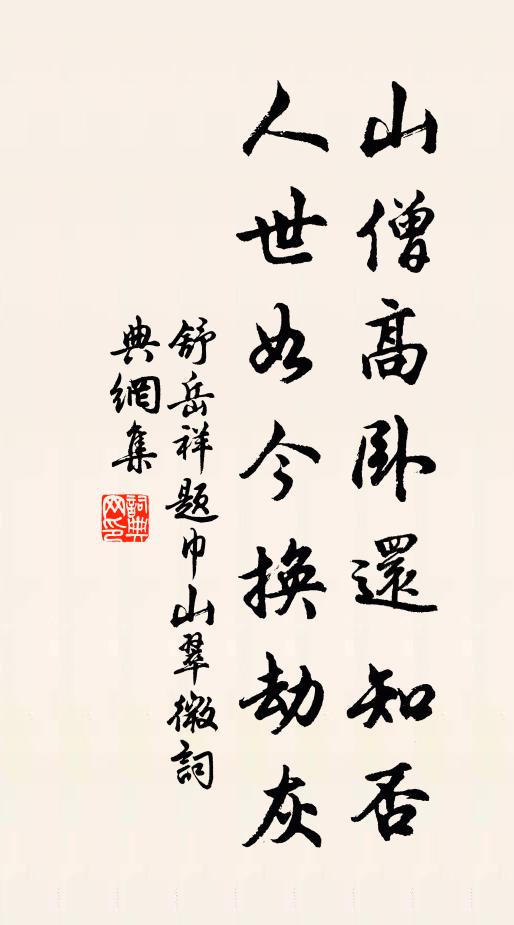 山僧高卧還知否
人世如今換劫灰
舒岳祥題巾山翠微詞
典網集
詞典網印